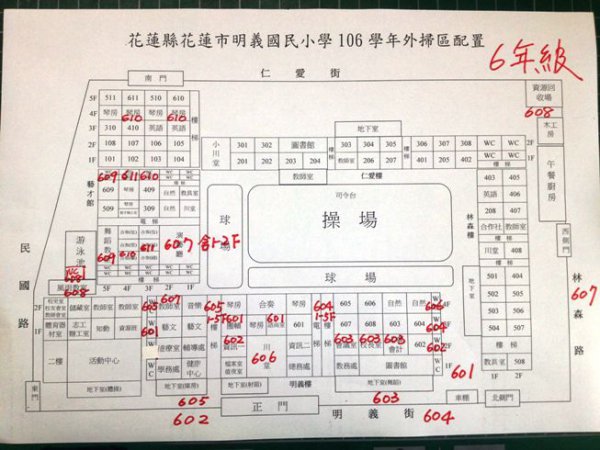 花蓮縣花蓮市明義國民小學 106 學年外掃區配置
6年級
南門
仁愛街
資源回收場
608
5F 511 611 510 610
4F 琴房 琴房 琴房 琴房
610 610
3F 310 410 英語 英語
2F 108 107 106 105
1F 101 102 103 104
樓梯
木工房
地下室
小川堂
301 302 圖書館
201 202 203 204
樓梯
303 304 305 306 307 308
教師室 206 205
樓梯
WC WC 2F
WC WC 1F
教師室
仁愛樓
午餐廚房
藝才館
609 611 610
609 琴房 409 自然 教具室
509 309 自然 川堂
電梯
403 405
英語 406
208 407
合作社
川堂 408
樓梯
林森樓
司令台
操場
球場
球場
西側門
民國路
游泳池
舞蹈教室
609 610 611
演廳
607 含1-2F
WC
608
風雨教室
608
地下室
501 404
502
503
504 401
樓梯
WC WC
教具室 508
1F 2F
林森路
607
2F
1F
儲藏室 教師室
體育器材室 志工辦工室 知動 資源班
二樓
活動中心
地下室(體操)
東門
603
601
WC
607
教師室 音樂
藝文 藝文
治療室 輔導處
學務處 健康中心
地下室(桌球)
605
1-5F
琴房 合奏 琴房
601 601
602
資訊一
606
川堂
601
資訊二
總務處
地下室(射箭)
明義樓
604
1-5F
電梯
樓梯
605 605 自然 自然
607 608 604 603
603 603 603
會議室 校長室 會計 602
教務處 圖書館
地下室(舞蹈)
606
604
602
WC
4F
3F
2F
1F
601
605
602
正門
明義街
603
604
車棚
北側門